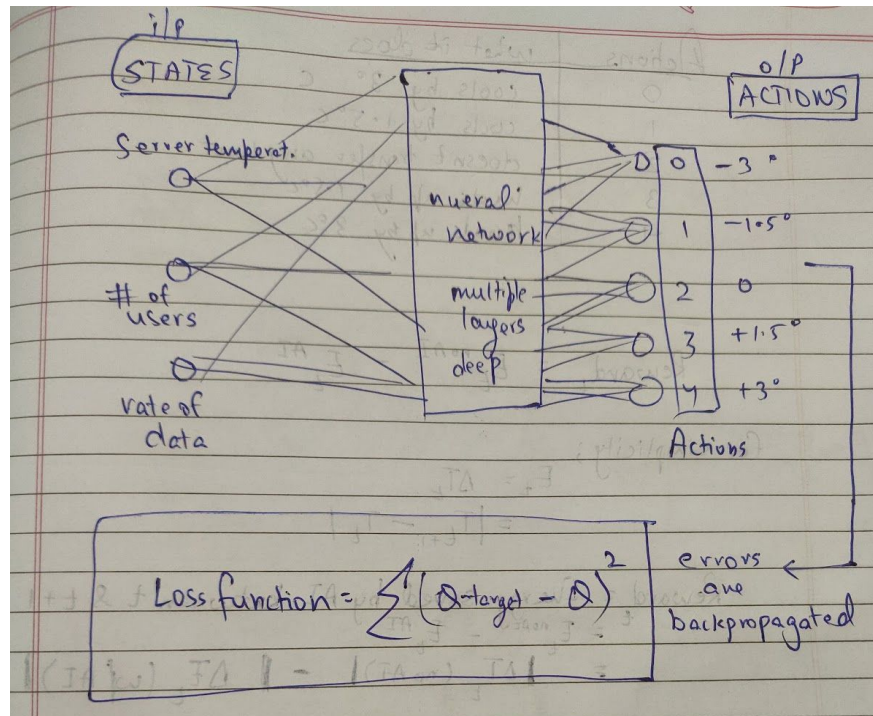 i/p
STATES
o/p
ACTIONS
Server temperat.
# of
users
rate of
data
nueral
network
multiple
layers
deep
0 -3°
1 -1.5°
2 0
3 +1.5°
4 +3°
Actions
Loss function = Σ (Q-target - Q)²
errors
are
backpropagated